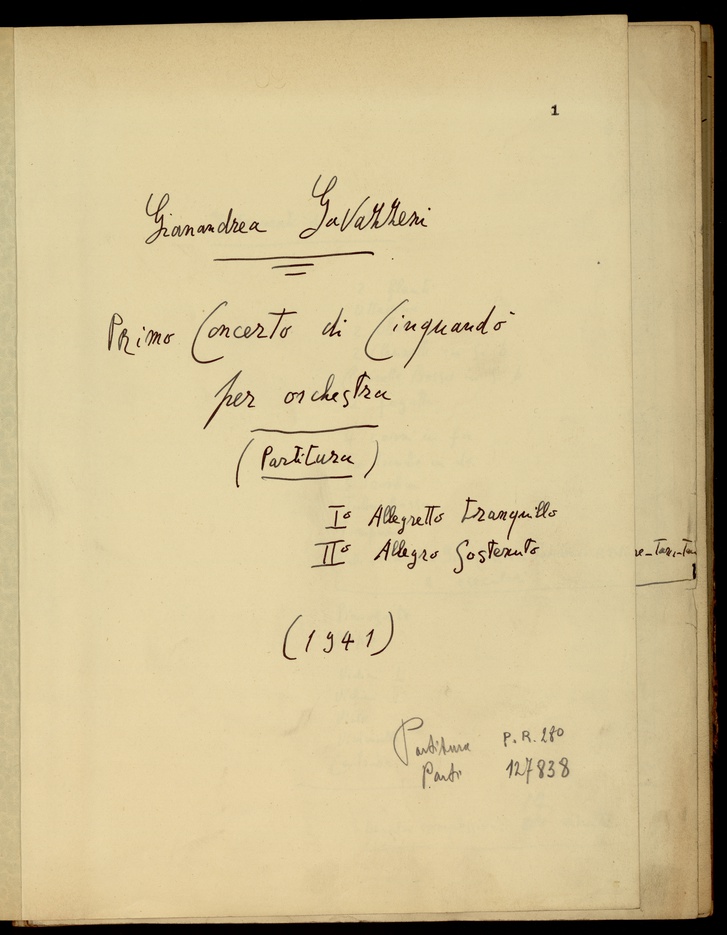 1
Gianandrea Gavazzeni
Primo Concerto di Cinquandò
per orchestra
(Partitura)
I° Allegretto tranquillo
II° Allegro Sostenuto
(1941)
Partitura P.R. 280
Parti 127838